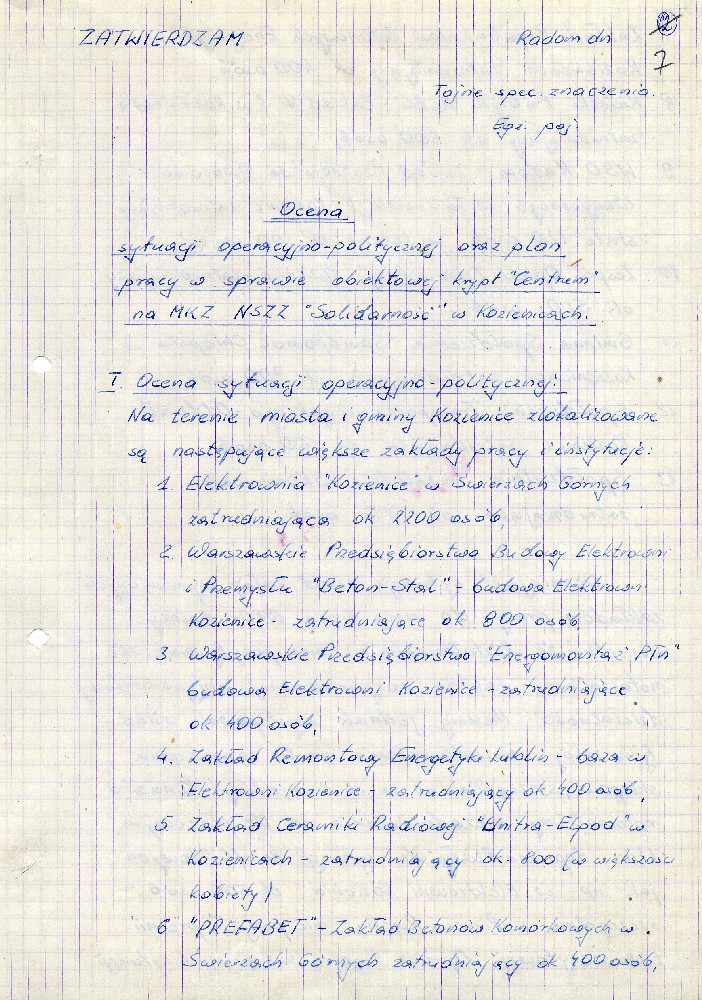 ZATWIERDZAM
Radom dn
7
Tajne spec. znaczenia.
Egz. poj.
Ocena
sytuacji operacyjno-politycznej oraz plan
pracy w sprawie obiektowej krypt "Centrum"
na MKZ NSZZ "Solidarność" w Kozienicach.
I. Ocena sytuacji operacyjno-politycznej:
Na terenie miasta i gminy Kozienice zlokalizowane
są następujące większe zakłady pracy i instytucje:
1. Elektrownia "Kozienice" w Świerżach Górnych
zatrudniająca ok 2200 osób,
2. Warszawskie Przedsiębiorstwo Budowy Elektrowni
i Przemysłu "Beton-Stal" - budowa Elektrowni
Kozienice - zatrudniające ok 800 osób,
3. Warszawskie Przedsiębiorstwo "Energomontaż Płn"
budowa Elektrowni Kozienice - zatrudniające
ok 400 osób,
4. Zakład Remontowy Energetyki Lublin - baza w
Elektrowni Kozienice - zatrudniający ok 400 osób,
5. Zakład Ceramiki Radiowej "Unitra-Elpod" w
Kozienicach - zatrudniający ok - 800 (w większości
kobiety)
6 "PREFABET" - Zakład Betonów Komórkowych w
Świerżach Górnych zatrudniający ok 400 osób,